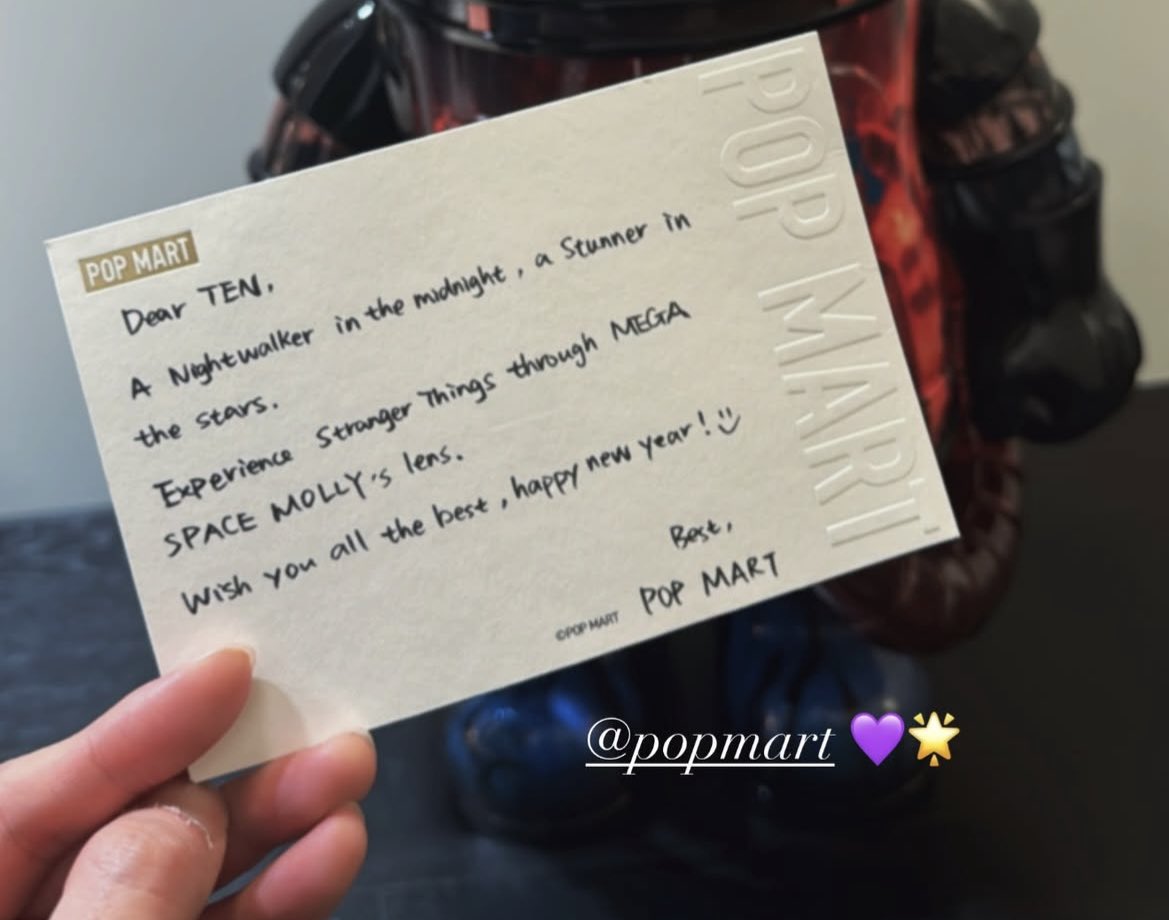 POP MART
POP MART
Dear TEN,
A Nightwalker in the midnight, a Stunner in
the stars.
Experience Stranger Things through MEGA
SPACE MOLLY's lens.
Wish you all the best, happy new year! :)
Best,
POP MART
©POP MART
@popmart 💜🌟